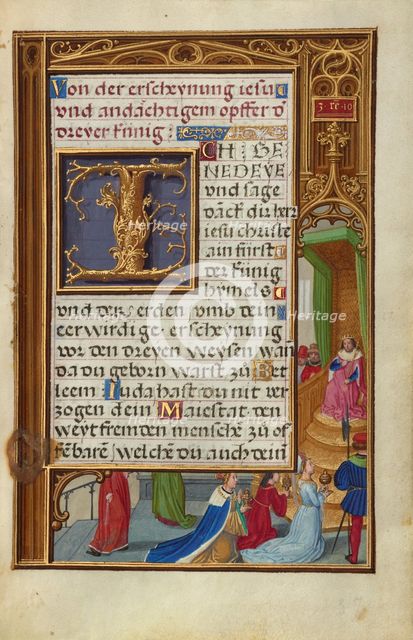 Von der erscheynung iesu
und andächtigem opffer d
dreyer künig.
3·re·10
ICH·GE
NEDEYE
und sage
danck du herr
iesu christe
ain fürst
der künig
hymels
und der erden umb dein
eerwirdige erscheynung
vor den dreyen weysen wan
da du geborn warst zu Bet
leem Iuda hast du nit ver
zogen dein Maiestat den
weyt fremden mensche zu of
fēbarē/ welche du auch dein
Heritage
Heritage
Heritage
Heritage